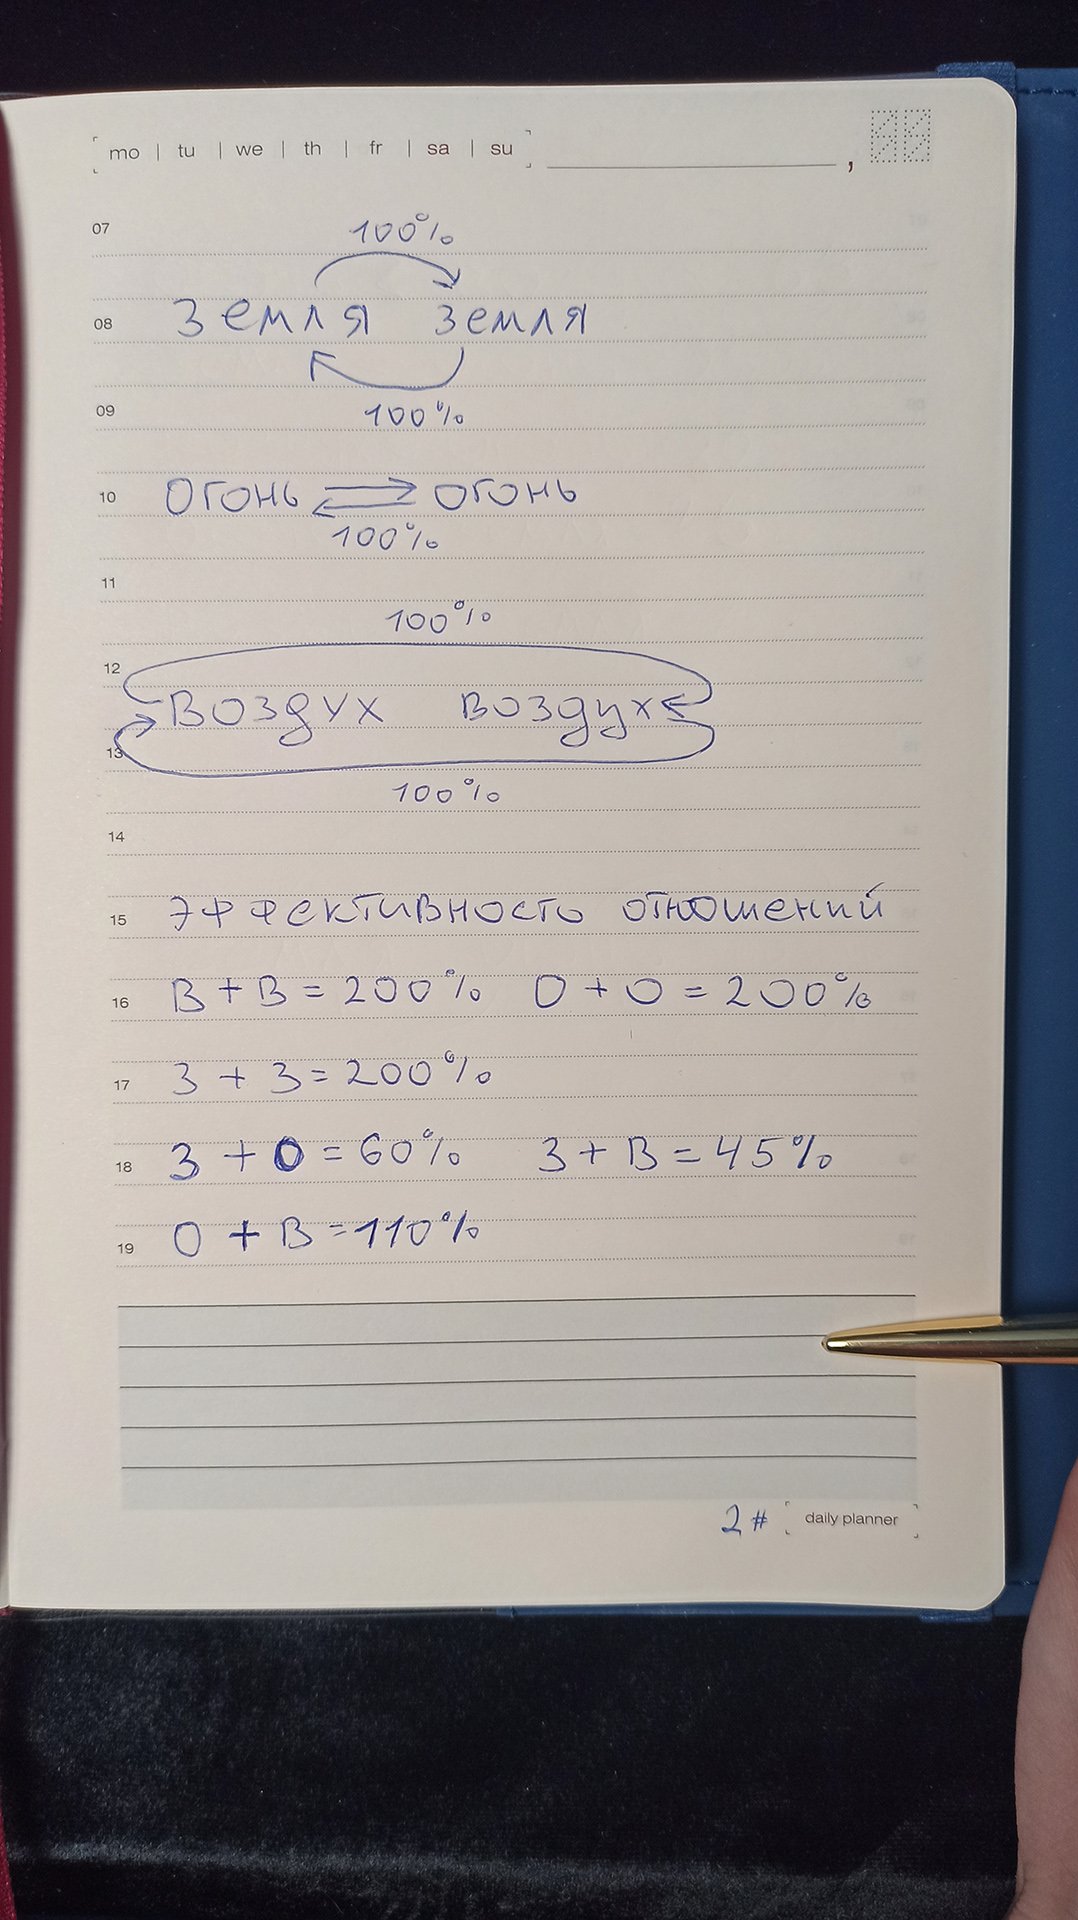 mo | tu | we | th | fr | sa | su ,
07
100%
08 Земля земля
09
100%
10 Огонь огонь
100%
11
100%
12
Воздух воздух
13
100%
14
15 Эффективность отношений
16 В + В = 200% О + О = 200%
17 З + З = 200%
18 З + О = 60% З + В = 45%
19 О + В = 110%
2# daily planner